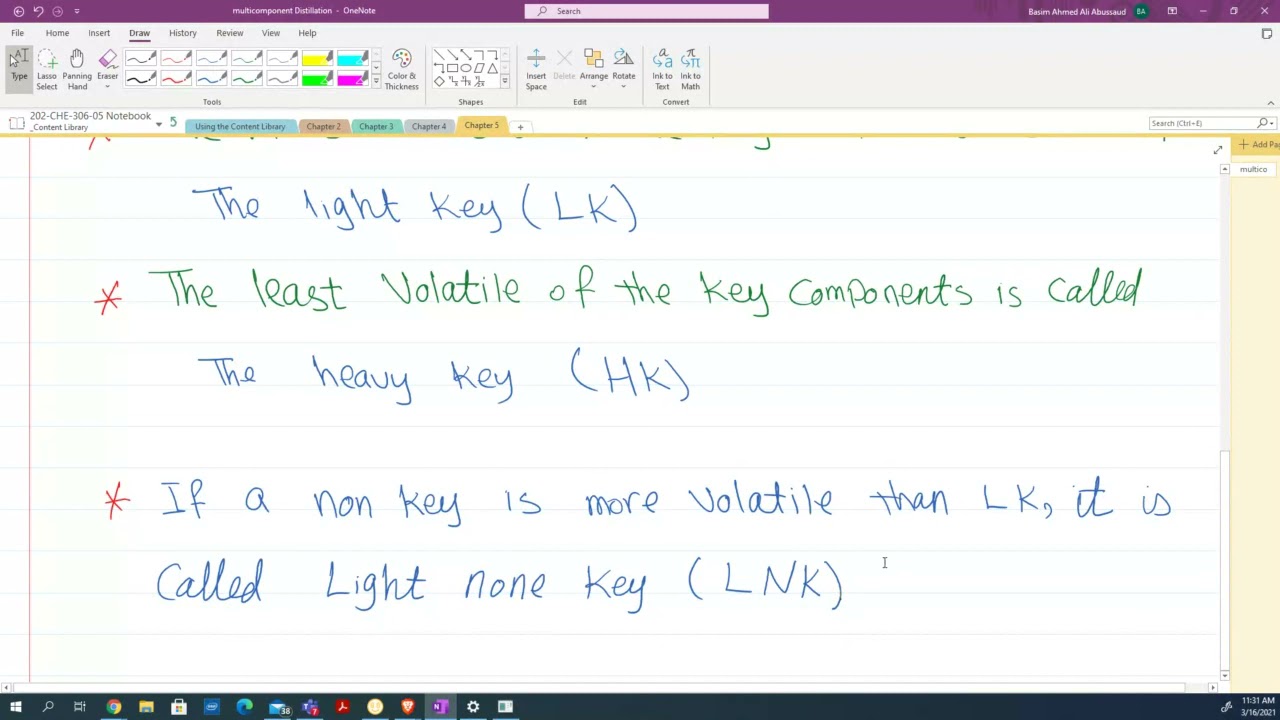 multicomponent Distillation - OneNote
Search
Basim Ahmed Ali Abussaud
BA
File Home Insert Draw History Review View Help
Type
Lasso Select
Panning Hand
Eraser
Color & Thickness
Insert Space
Delete
Arrange
Rotate
Ink to Text
Ink to Math
Tools Shapes Edit Convert
202-CHE-306-05 Notebook
_Content Library
5
Using the Content Library Chapter 2 Chapter 3 Chapter 4 Chapter 5 +
Search (Ctrl+E)
+ Add Pa
multico
The light key (LK)
* The least Volatile of the key components is called
The heavy key (HK)
* If a non key is more volatile than LK, it is
Called Light none key (LNK)
38
7
11:31 AM
3/16/2021